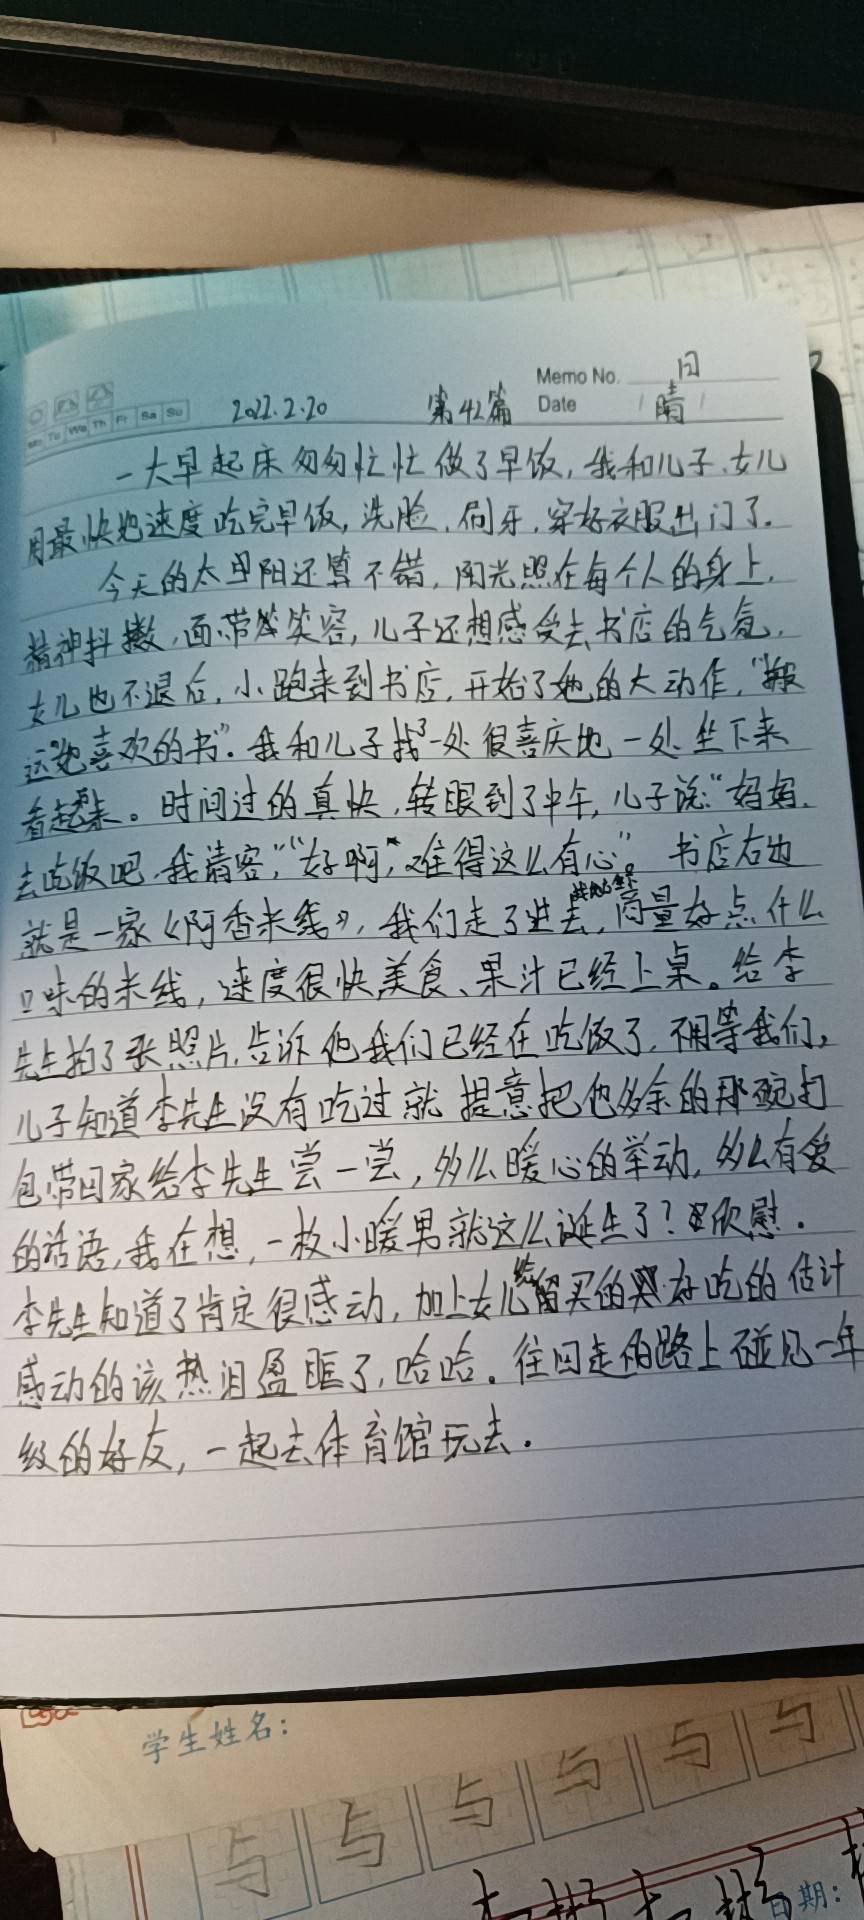 Memo No. 日
Mo Tu We Th Fr Sa Su 2022.2.20 第42篇 Date 晴
一大早起床匆匆忙忙做了早饭,我和儿子、女儿
用最快的速度吃完早饭,洗脸,刷牙,穿好衣服出门了.
今天的太阳还算不错,阳光照在每个人的身上,
精神抖擞,面带笑容,儿子还想感受去书店的气氛,
女儿也不退后,小跑来到书店,开始了她的大动作,“搬
运”她喜欢的书”.我和儿子找了一处很喜庆地一处坐下来
看起来。时间过的真快,转眼到了中午,儿子说:“妈妈,
去吃饭吧,我请客,”“好啊”,难得这么有心”。书店右边
就是一家《阿香米线》,我们走了进去,商量好点什么
口味的米线,速度很快美食、果汁已经上桌。给李
先生拍了张照片,告诉他我们已经在吃饭了,不用等我们,
儿子知道李先生没有吃过就提意把他多余的那碗打
包带回家给李先生尝一尝,多么暖心的举动,多么有爱
的话语,我在想,一枚小暖男就这么诞生了?欣慰.
李先生知道了肯定很感动,加上女儿给留买的好吃的估计
感动的该热泪盈眶了,哈哈。往回走的路上碰见一年
级的好友,一起去体育馆玩去.
学生姓名:
与 与 与 与 与 与
日期: